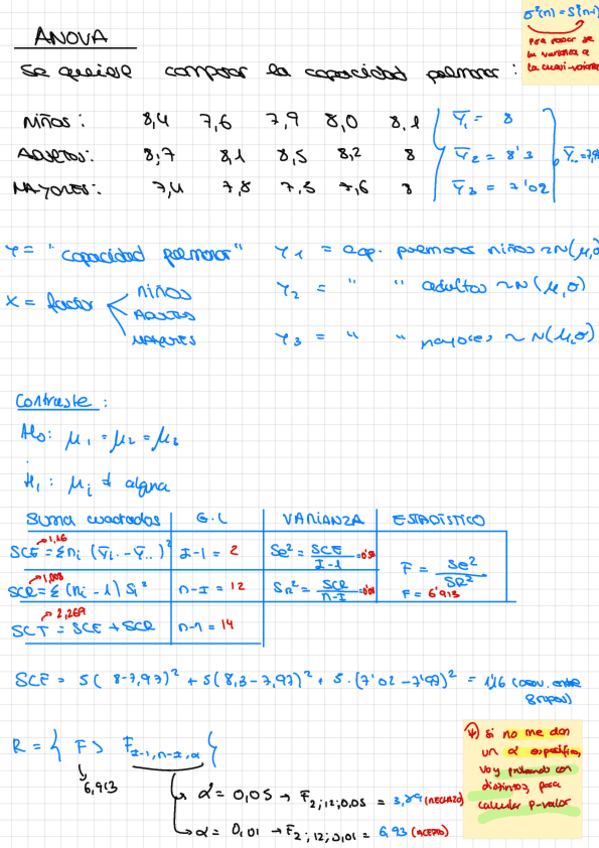 ANOVA
σ²(n) = S²(n-1)
Para pasar de
la varianza a
la cuasi-varianza
Se quiere comparar la capacidad pulmonar:
NIÑOS: 8,4 7,6 7,9 8,0 8,1 Ȳ₁ = 8
ADULTOS: 8,7 8,1 8,5 8,2 8 Ȳ₂ = 8'3 Ȳ.. = 7,9
MAYORES: 7,4 7,8 7,5 7,6 8 Ȳ₃ = 7'02
Y = "capacidad pulmonar" Y₁ = cap. pulmonar niños ~ N(μ,σ)
X = factor NIÑOS
ADULTOS
MAYORES
Y₂ = " " adultos ~ N(μ,σ)
Y₃ = " " mayores ~ N(μ,σ)
Contraste:
H₀: μ₁ = μ₂ = μ₃
H₁: μᵢ ≠ alguna
Suma cuadrados G.L VARIANZA ESTADÍSTICO
1,16
SCE = Σnᵢ (Ȳᵢ. - Ȳ..)² I-1 = 2 Se² = SCE / I-1
F = Se² / SR²
F = 6'913
SCR = Σ (nᵢ - 1) Sᵢ² n-I = 12 SR² = SCR / n-I
2,269
SCT = SCE + SCR n-1 = 14
SCE = 5(8-7,97)² + 5(8,3-7,97)² + 5·(7'02-7'97)² = 1,16 (desv. entre
grupos)
R = { F > F I-1, n-I, α }
6,913
α = 0,05 → F 2;12;0,05 = 3,89 (RECHAZO)
α = 0,01 → F 2;12;0,01 = 6,93 (ACEPTO)
si no me dan
un α específica,
voy probando con
distintos, para
calcular p-valor